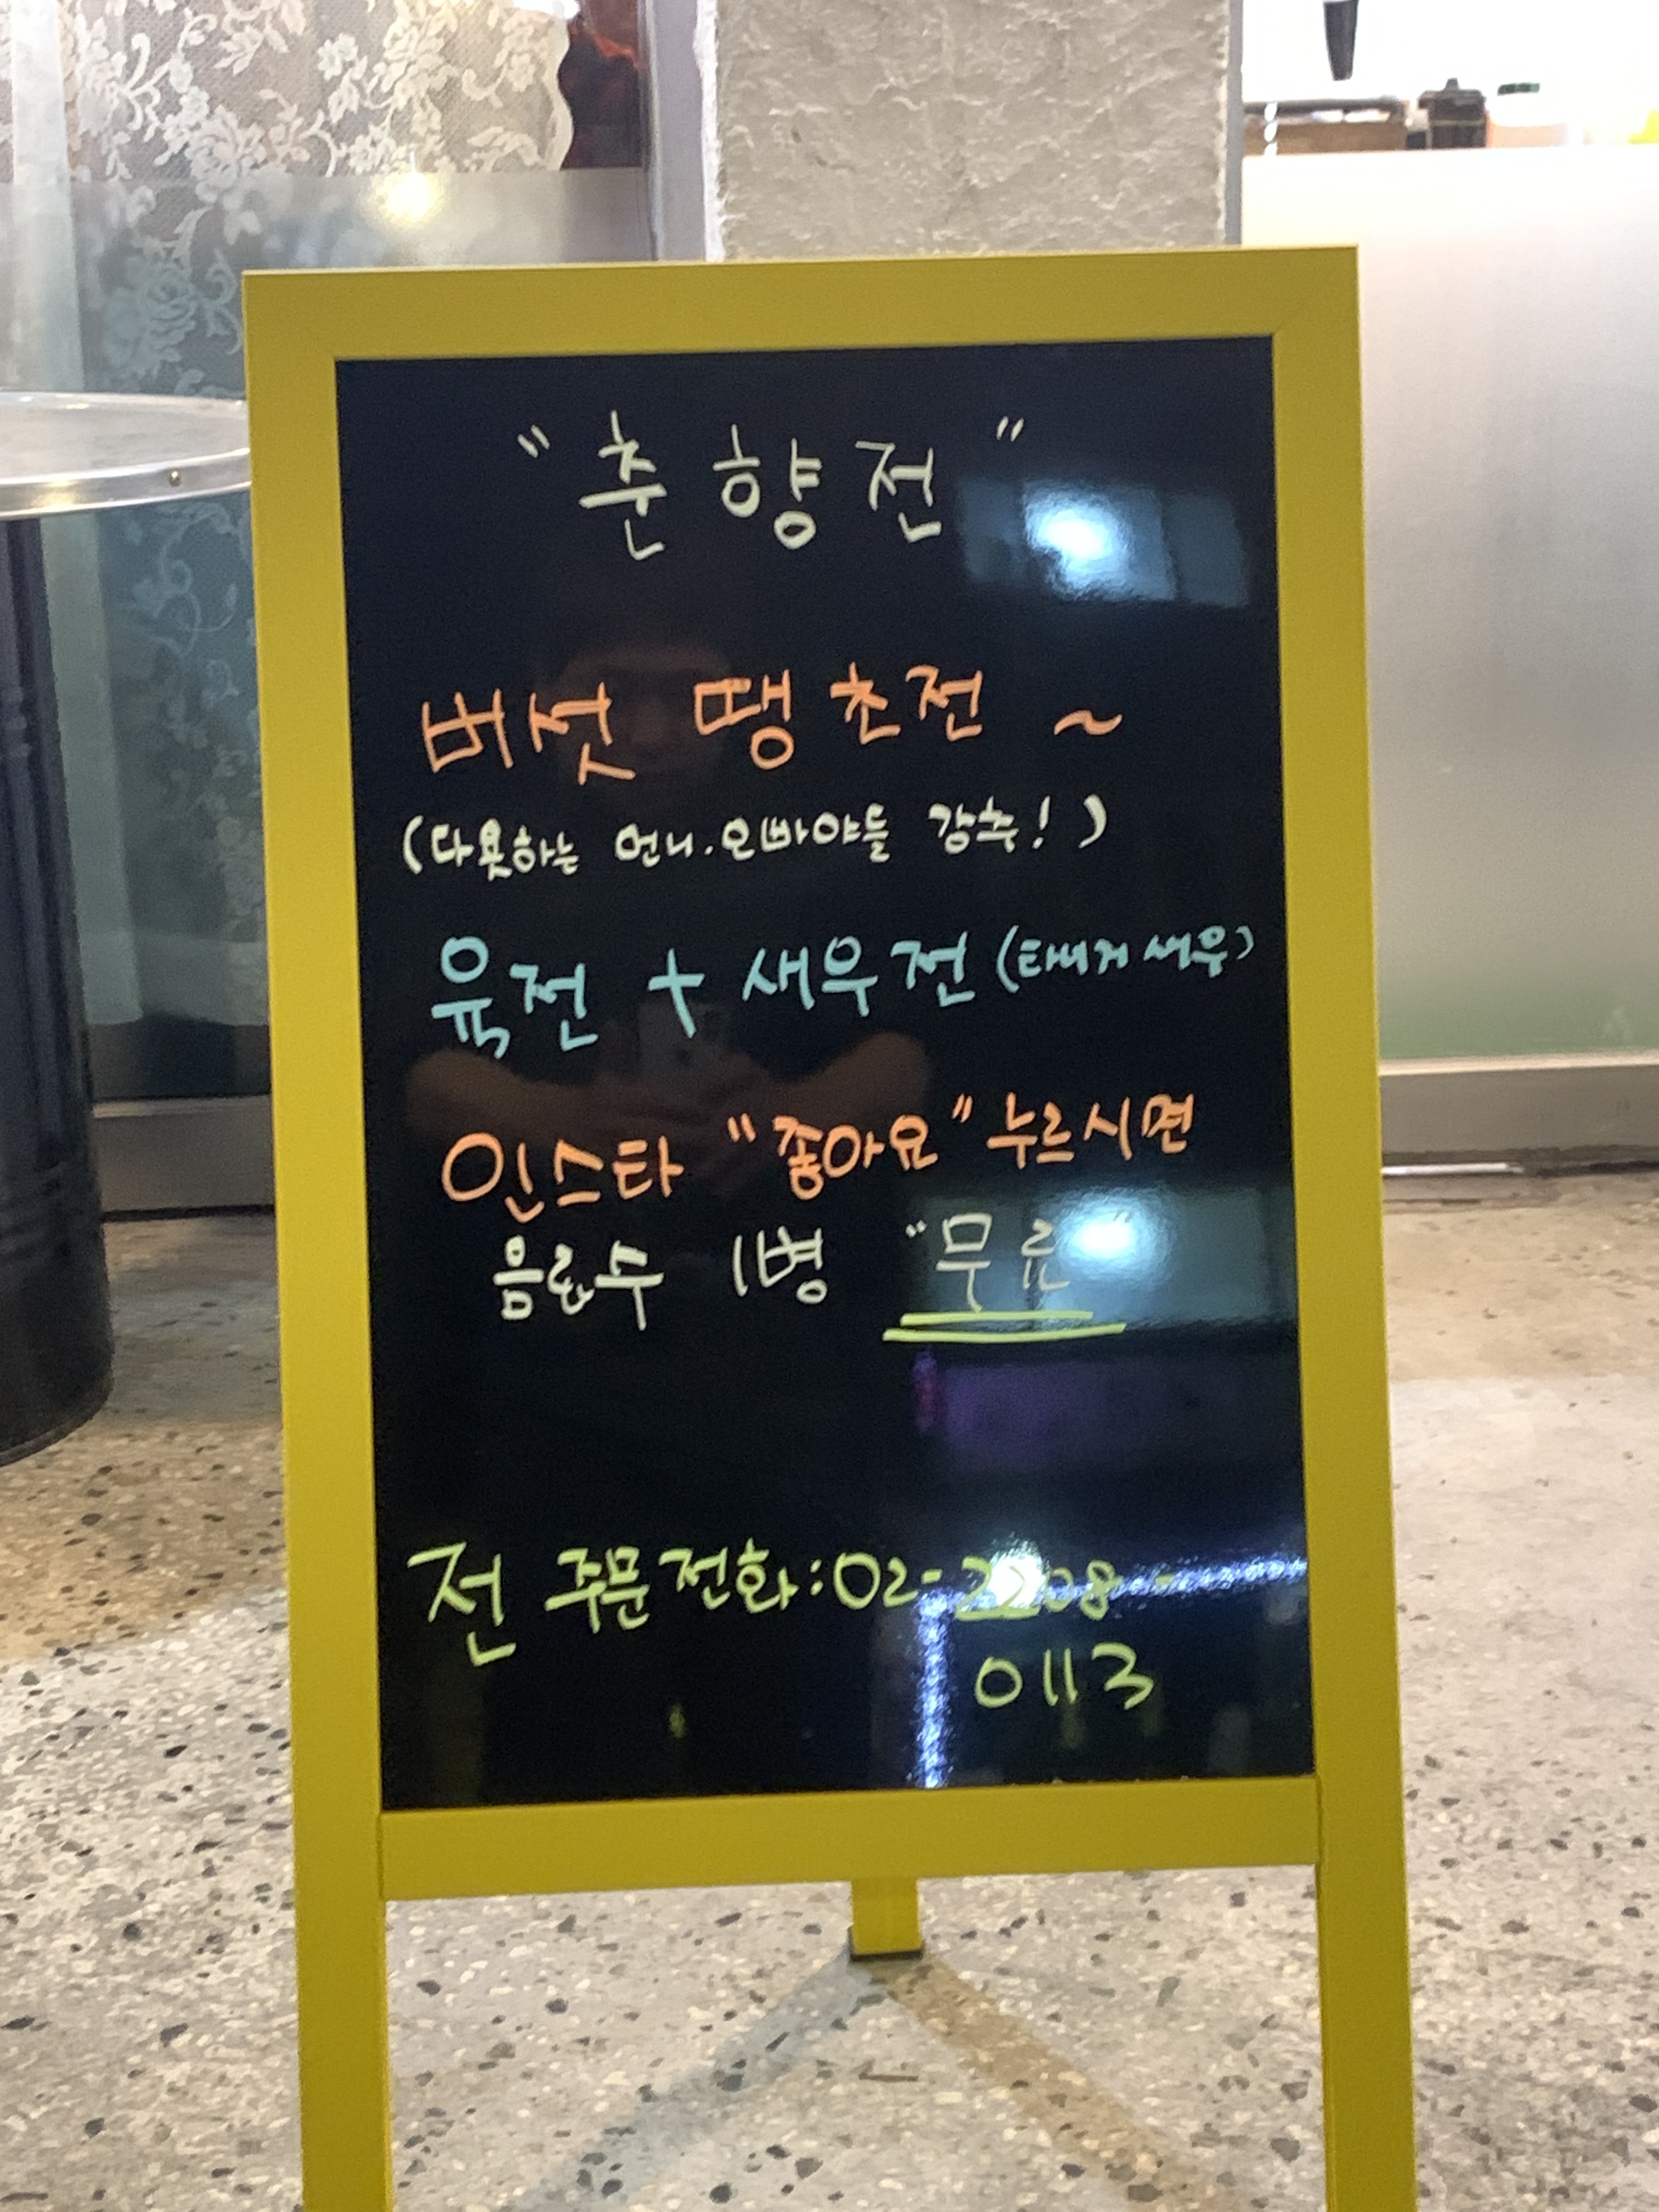 "춘향전"
버섯 땡초전 ~
(다욧하는 언니.오빠야들 강추!)
육전 + 새우전 (타이거새우)
인스타 "좋아요" 누르시면
음료수 1병 "무료"
전 주문전화:02-2208-
0113